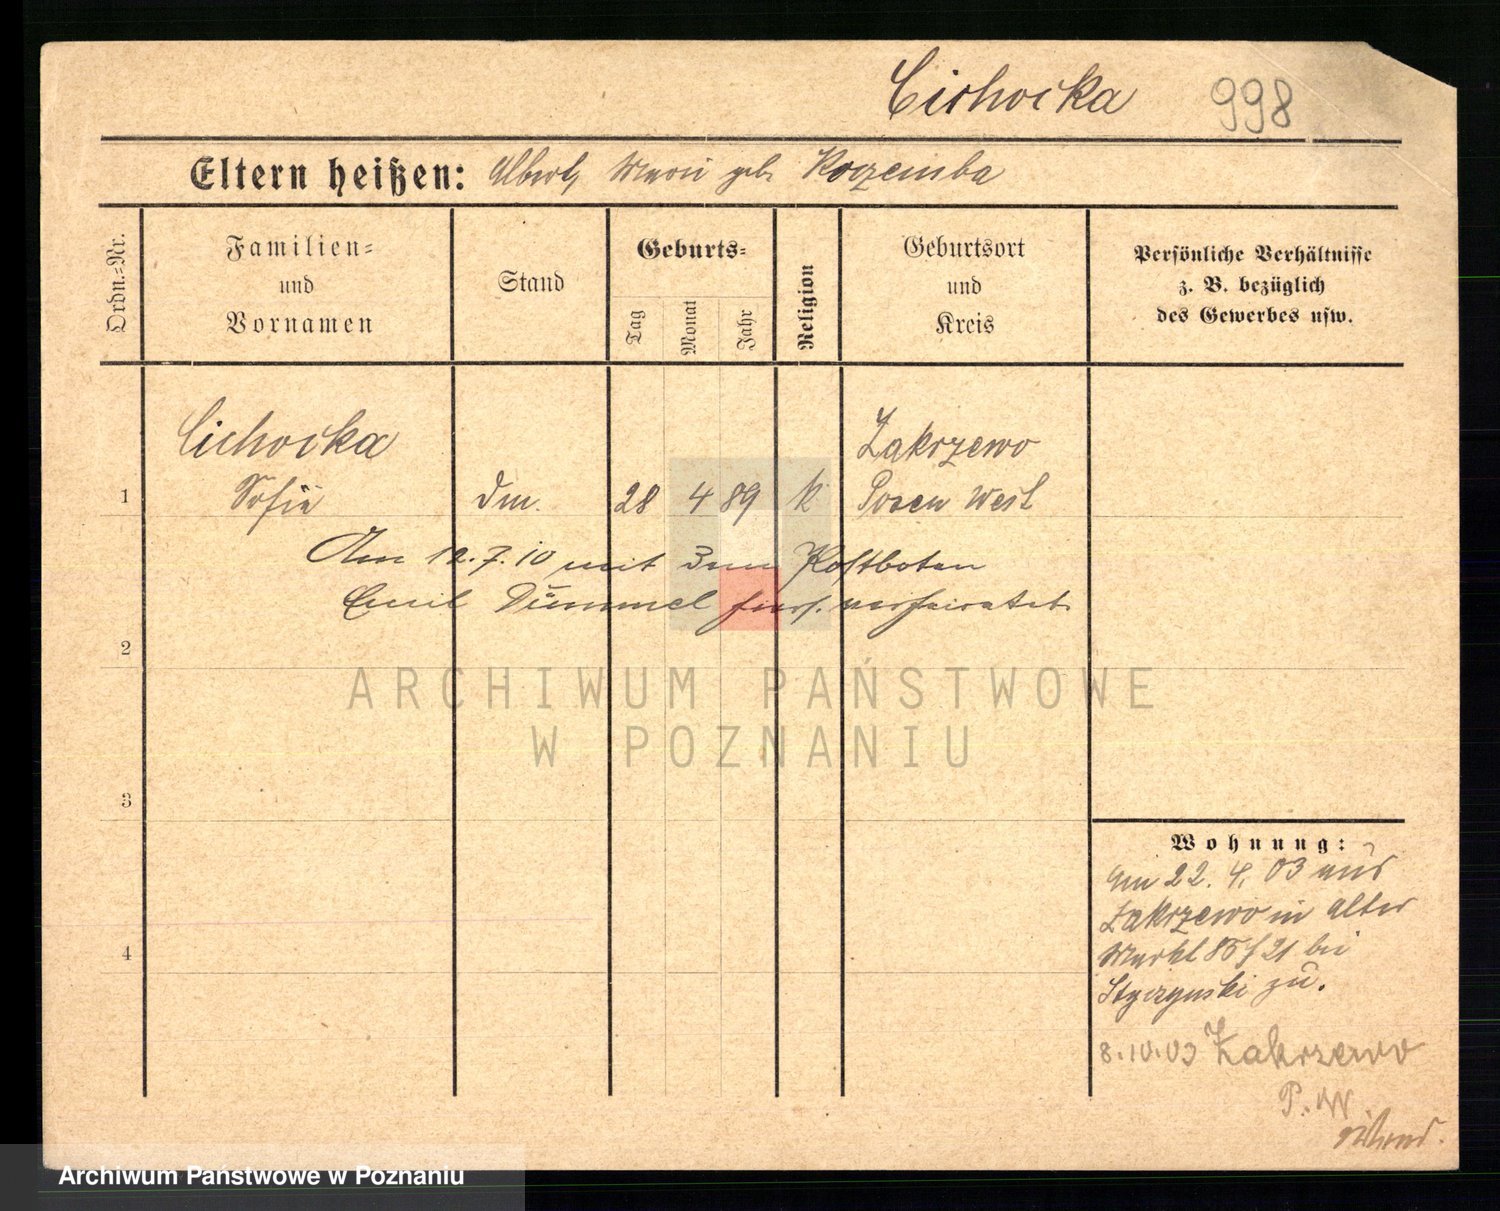 Cichocka 998
Eltern heißen: Albert, Marie geb. Koczemba
Ordn.=Nr.
Familien=
und
Vornamen
Stand
Geburts=
Tag
Monat
Jahr
Religion
Geburtsort
und
Kreis
Persönliche Verhältnisse
z. B. bezüglich
des Gewerbes usw.
Cichocka Zakrzewo
1 Sofie Dm. 28 4 89 k Posen West
Am 12.7.10 mit dem Postboten
Emil Dümmel hier verheiratet
2
ARCHIWUM PAŃSTWOWE
W POZNANIU
3
Wohnung:
Am 22. 4. 03 aus
Zakrzewo in Alter
4 Markt 85/21 bei
Styczynski zu.
8.10.03 Zakrzewo
P. W
Archiwum Państwowe w Poznaniu